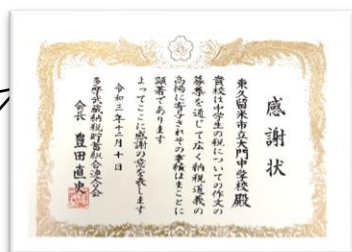 感謝状
東久留米市立大門中学校殿
貴校は中学生の税についての作文の
募集を通じて広く納税道義の
高揚に寄与されその事績はまことに
顕著であります
よってここに感謝の意を表します
令和三年十二月十日
多摩武蔵納税貯蓄組合連合会
会長 豊田直史